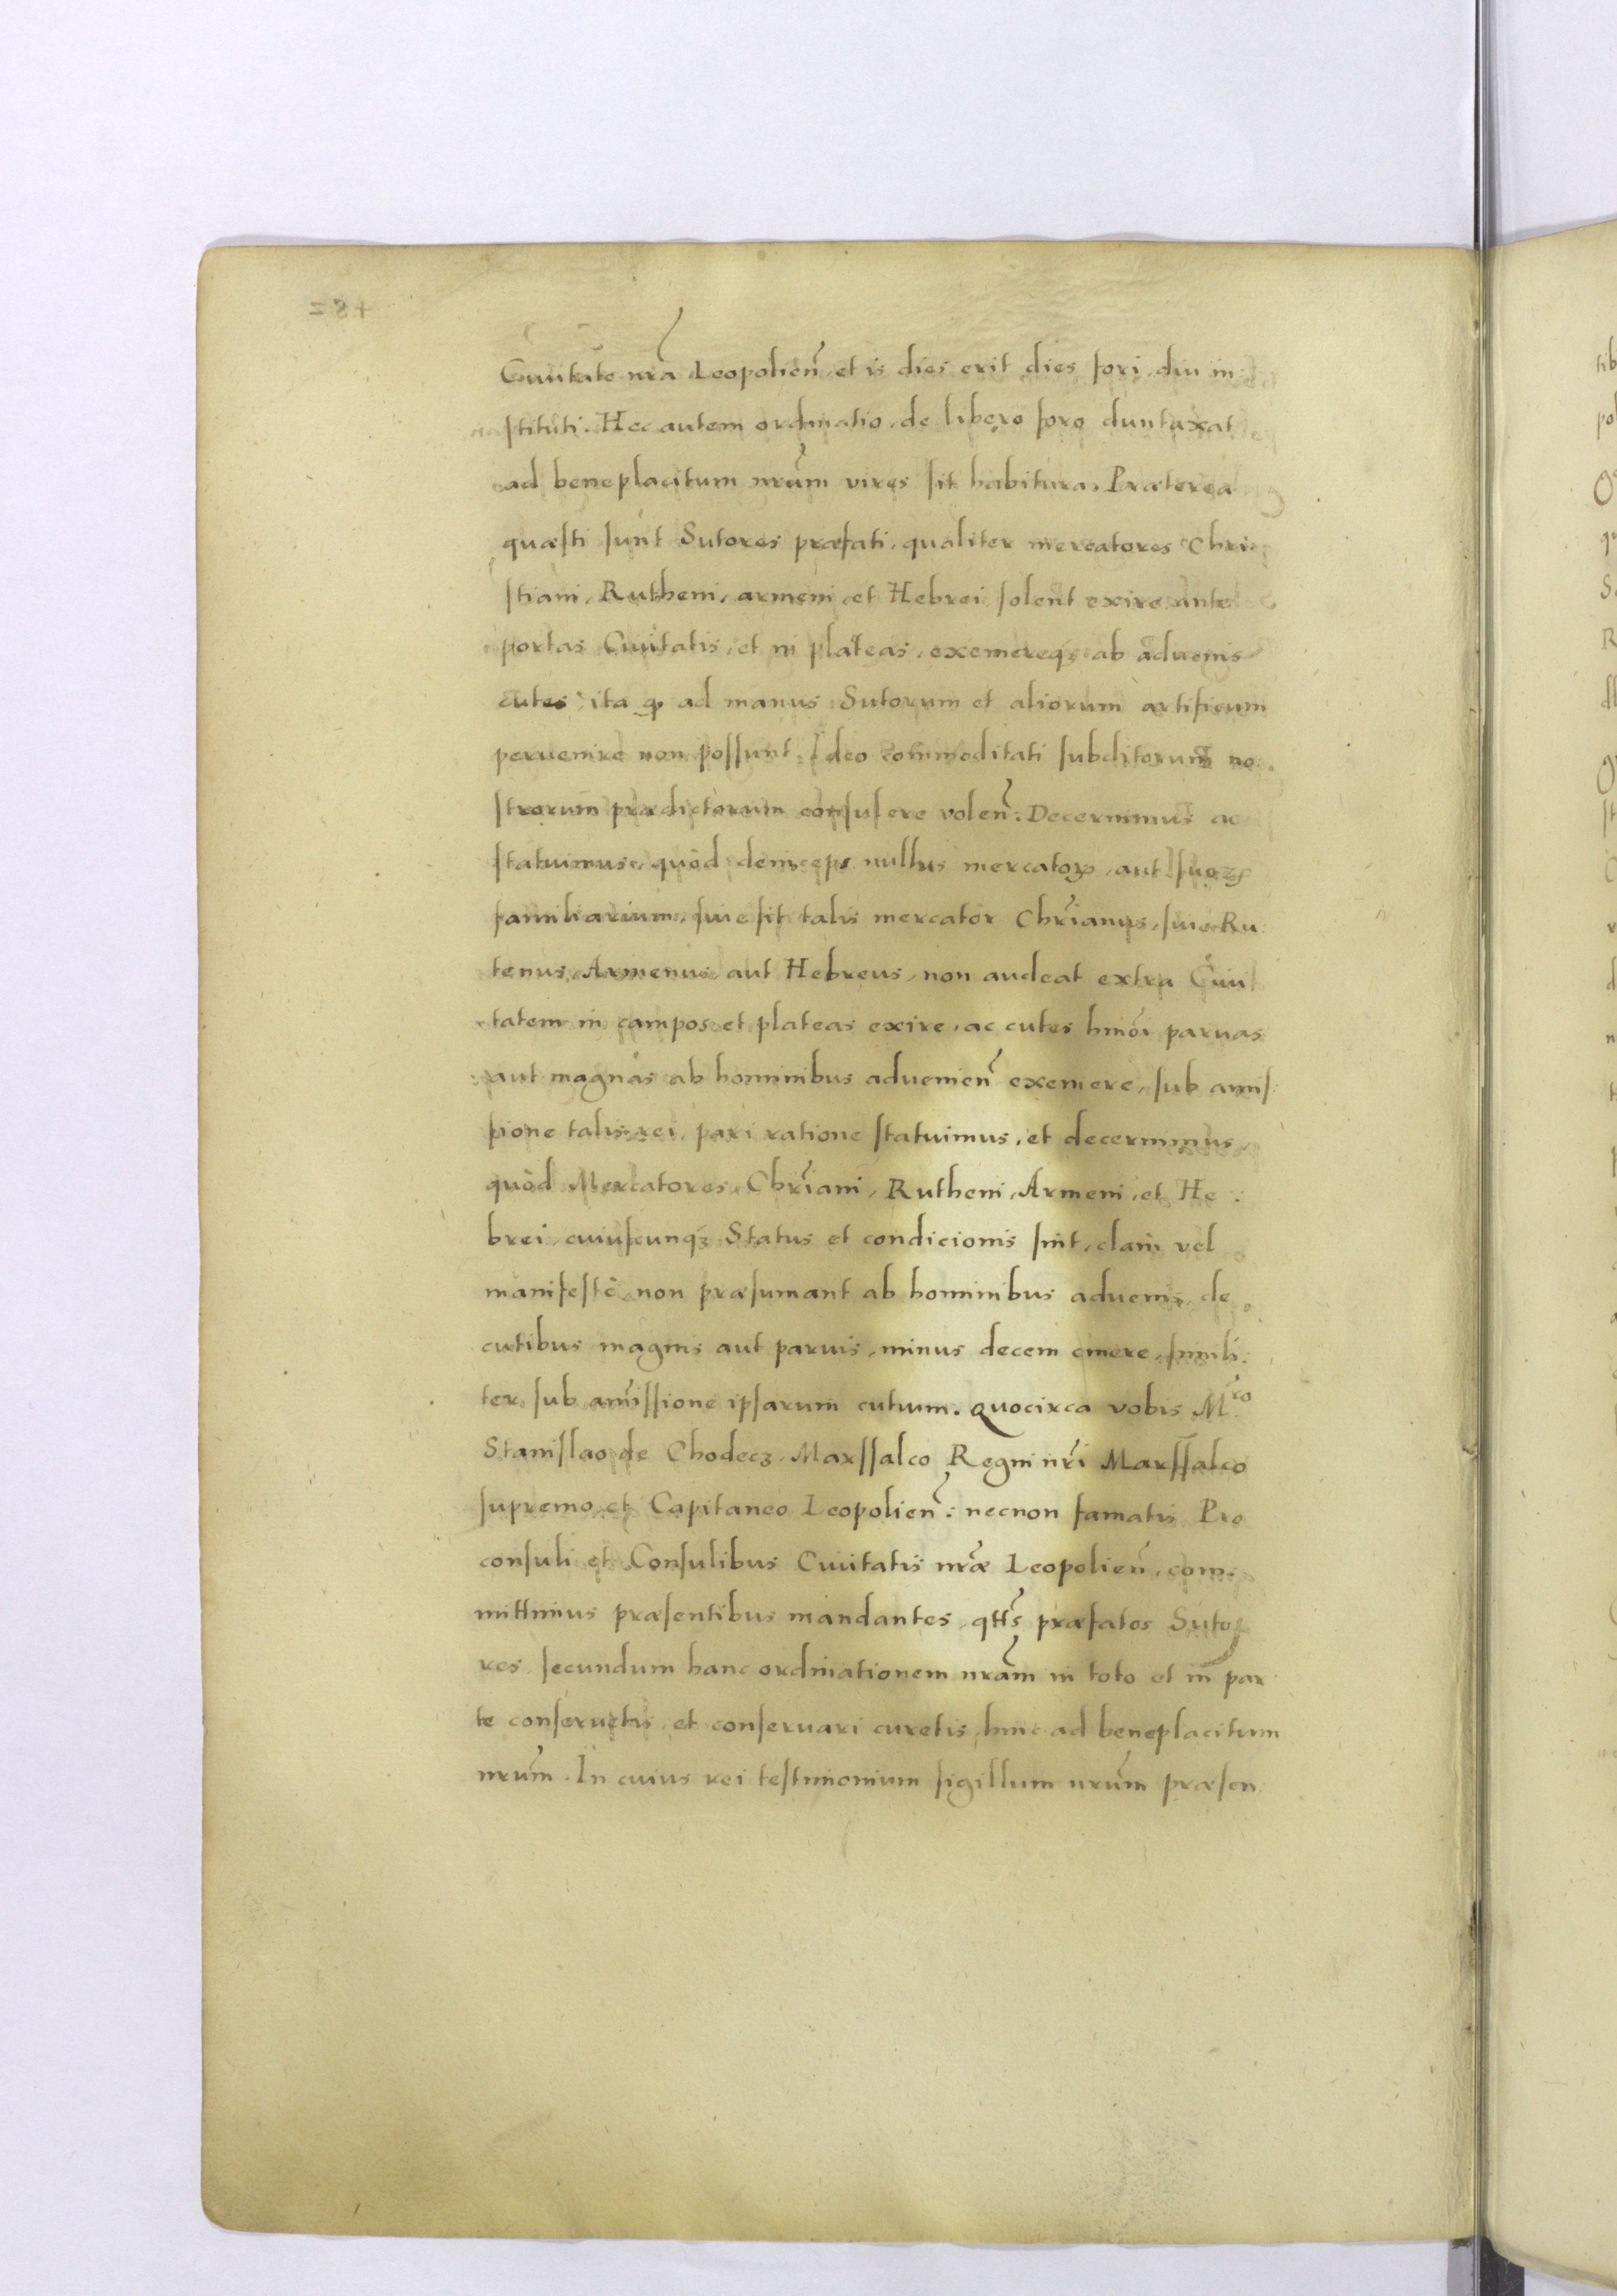 Ciuitate nr̃a Leopolien̄, et is dies erit dies fori, diu in:
stituti. Hec autem ordinatio, de libero foro duntaxat
ad beneplacitum nr̃um vires sit habitura. Præterea
quæsti sunt Sutores præfati, qualiter mercatores Chri
stiani, Rutheni, armeni, et Hebrei solent exire ante
portas Ciuitatis, et in plateas, exemereq́ꝫ ab aduenis
cutes: ita ꝙ ad manus Sutorum et aliorum artificum
peruenire non possunt. Ideo commoditati subditorum no
strorum prædictorum consulere volen̄: Decernimus ac
statuimus, quòd deinceps nullus mercatoꝝ, aut suoꝝ
familiarium, siue sit talis mercator Chr̃ianus, siue Ru
tenus, Armenus, aut Hebreus, non audeat extra Ciui
tatem in campos et plateas exire, ac cutes hmõi paruas
aut magnas ab hominibus aduenien̄ exemere, sub amis
sione talis rei. pari ratione statuimus, et decernimus,
quòd Mercatores, Chr̃iani, Rutheni, Armeni, et He:
brei, cuiuscunq́ꝫ Status et condicionis sint, clam vel
manifestè non præsumant ab hominibus aduenis, de
cutibus magnis aut paruis, minus decem emere, simili:
ter sub amissione ipsarum cutium. Quocirca vobis M.co
Stanislao de Chodecz, Marssalco Regni nr̃i Marssalco
supremo, et Capitaneo Leopolien̄: necnon famatis Pro
consuli et Consulibus Ciuitatis nr̃æ Leopolien̄, com:
mittimus præsentibus mandantes, qtt̃s præfatos Suto
res, secundum hanc ordinationem nr̃am in toto et in par
te conseruetis, et conseruari curetis, hinc ad beneplacitum
nr̃um. In cuius rei testimonium sigillum nr̃um præsen